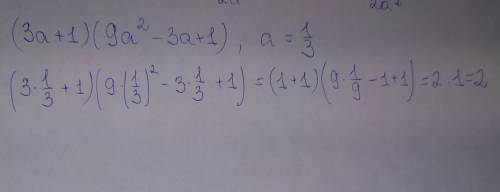 (3a+1)(9a²-3a+1), a = 1/3
(3·1/3+1)(9·(1/3)²-3·1/3+1) = (1+1)(9·1/9-1+1)=2·1=2